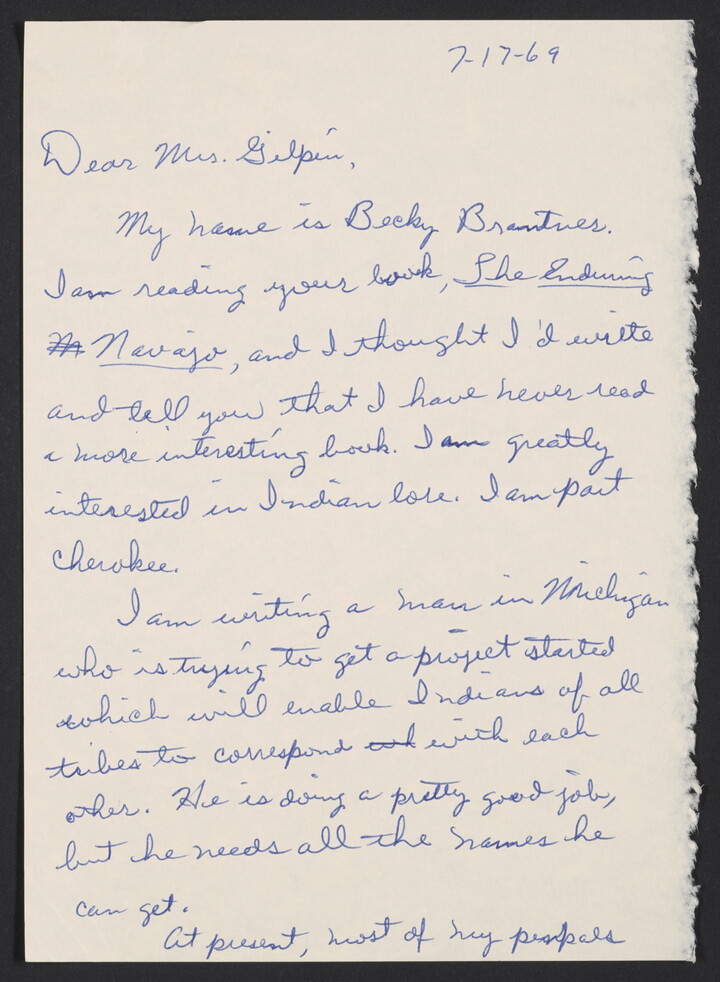 7-17-69
Dear Mrs. Gilpin,
My name is Becky Brantner.
I am reading your book, The Enduring
Navajo, and I thought I'd write
and tell you that I have never read
a more interesting book. I am greatly
interested in Indian lore. I am part
Cherokee.
I am writing a man in Michigan
who is trying to get a project started
which will enable Indians of all
tribes to correspond with each
other. He is doing a pretty good job,
but he needs all the names he
can get.
At present, most of my penpals